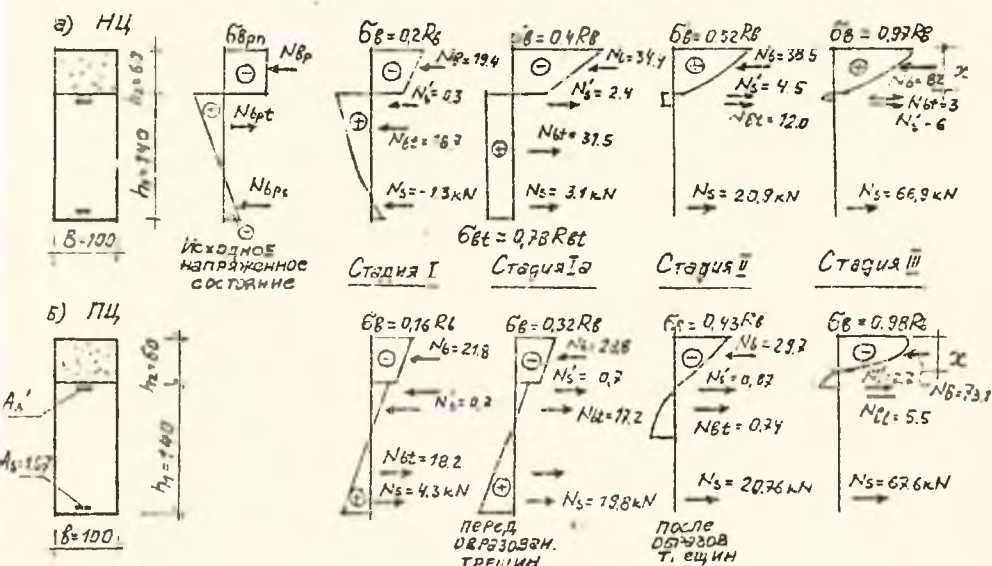 а) НЦ
h₂=60
h₁=140
В-100
бврп
Nвр
Nвpt
Nвps
Исходное
напряженное
состояние
бв=0,2Rв
Nв=19.4
Ns'=0.3
Nвt=16.7
Ns=-1.3kN
Стадия I
бв=0.4Rв
Nв=34,4
Ns'=2.4
Nвt=31.5
Ns=3.1kN
бвt=0,78Rвt
Стадия Iа
бв=0.52Rв
Nв=38.5
Ns'=4.5
Nвt=12.0
Ns=20,9kN
Стадия II
бв=0,97Rв
x
Nв=82
Nвt=3
Ns'-6
Ns=66,9kN
Стадия III
б) ПЦ
h₂=60
h₁=140
As'
As=157
в=100
бв=0,16Rв
Nв=21.8
Nвt=18.2
Ns=4.3kN
бв=0,32Rв
Ns'=0,7
Nвt=17.2
Ns=19,8kN
перед
образован.
трещин
бв=0,43Rв
Nв=29.7
Ns'=0,87
Nвt=0,74
Ns=20.76kN
после
образов
т. ещин
бв=0.98Rв
x
Nвt=5.5
Ns=67.6kN